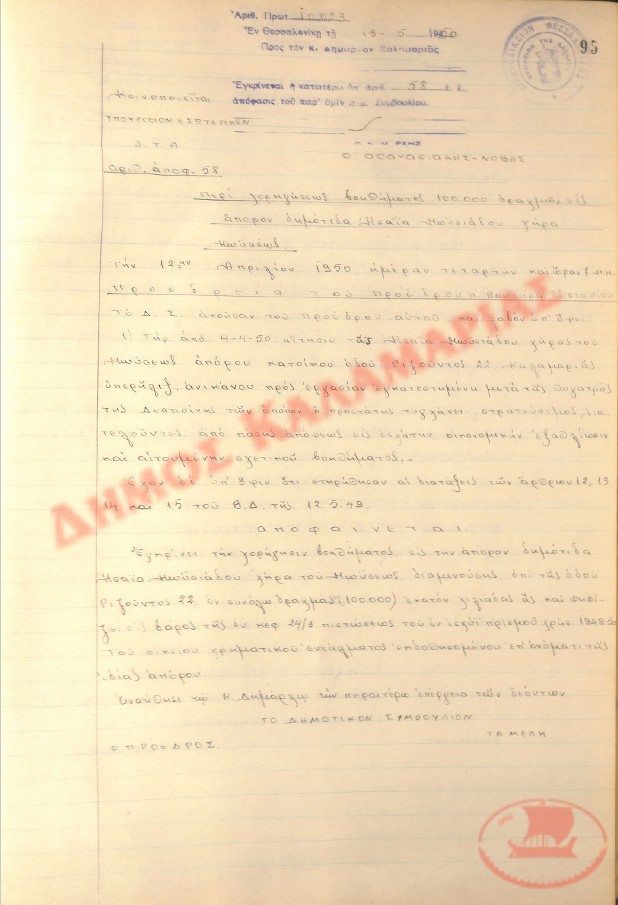 Ἀριθ. Πρωτ.
Ἐν Θεσσαλονίκῃ τῇ 15-5-1950
Πρὸς τὸν κ. Δήμαρχον Καλαμαριᾶς
95
Ἐγκρίνεται ἡ κατωτέρω ὑπ' ἀριθ. 58 ἐ. ἔ.
ἀπόφασις τοῦ παρ' ὑμῖν Δημ. Συμβουλίου.
Κοινοποιεῖται
ΥΠΟΥΡΓΕΙΟΝ ΕΣΩΤΕΡΙΚΩΝ
Ο ΝΟΜΑΡΧΗΣ
Σ.Τ.Α.
Θ. ΑΘΑΝΑΣΙΑΔΗΣ-ΝΟΒΑΣ
Ἀριθ. ἀποφ. 58
Περὶ χορηγήσεως βοηθήματος 100.000 δραχμῶν εἰς
ἄπορον δημότιδα Μωϋσιάδου χήρα
Μωϋσέως.
Τὴν 12ην Ἀπριλίου 1950 ἡμέραν τετάρτην καὶ ὥραν 7 μ.μ.
Προεδρεία τοῦ προέδρου
Τὸ Δ. Σ. ἀκοῦσαν τοῦ προέδρου αὐτοῦ καὶ λαβὸν ὑπ' ὄψει
1) Τὴν ἀπὸ 4-4-50 αἴτησιν τῆς Μωϋσιάδου χήρας τοῦ
Μωϋσέως ἀπόρου κατοίκου ὁδοῦ Ριζοῦντος 22 Καλαμαριᾶς
ὑπερήλιξ, ἀνικάνου πρὸς ἐργασίαν ἐγκατεστημένη μετὰ τῆς θυγατρός
της Δεσποίνης τῶν ὁποίων ὁ προστάτης τυγχάνει στρατεύσιμος,
τελοῦντες ἀπὸ πάσης ἀπόψεως εἰς ἐσχάτην οἰκονομικὴν ἐξαθλίωσιν
καὶ αἰτουμένην σχετικοῦ βοηθήματος.-
Ἔχον δὲ ὑπ' ὄψιν ὅτι ἐτηρήθησαν αἱ διατάξεις τῶν ἄρθρων 12, 13
14 καὶ 15 τοῦ Β.Δ. τῆς 12.5.49.
ἀποφαίνεται.
Ἐγκρίνει τὴν χορήγησιν βοηθήματος εἰς τὴν ἄπορον δημότιδα
Μωϋσιάδου χήρα τοῦ Μωϋσέως διαμενούσης ἐπὶ τῆς ὁδοῦ
Ριζοῦντος 22, ἐν συνόλῳ δραχμὰς (100.000) ἑκατὸν χιλιάδας ἃς καὶ ψηφί-
ζει εἰς βάρος τῆς ἐν κεφ. 24/3 πιστώσεως τοῦ ἐν ἰσχύϊ χρήσ. 1949-50
τοῦ οἰκείου χρηματικοῦ ἐντάλματος ἐκδοθησομένου ἐπ' ὀνόματι τῆς
ἰδίας ἀπόρου.
Ἀναθέτει τῷ κ. Δημάρχῳ τὴν περαιτέρω ἐνέργεια τῶν δεόντων
ΤΟ ΔΗΜΟΤΙΚΟΝ ΣΥΜΒΟΥΛΙΟΝ
ΤΑ ΜΕΛΗ
Ο ΠΡΟΕΔΡΟΣ.
ΔΗΜΟΣ ΚΑΛΑΜΑΡΙΑΣ